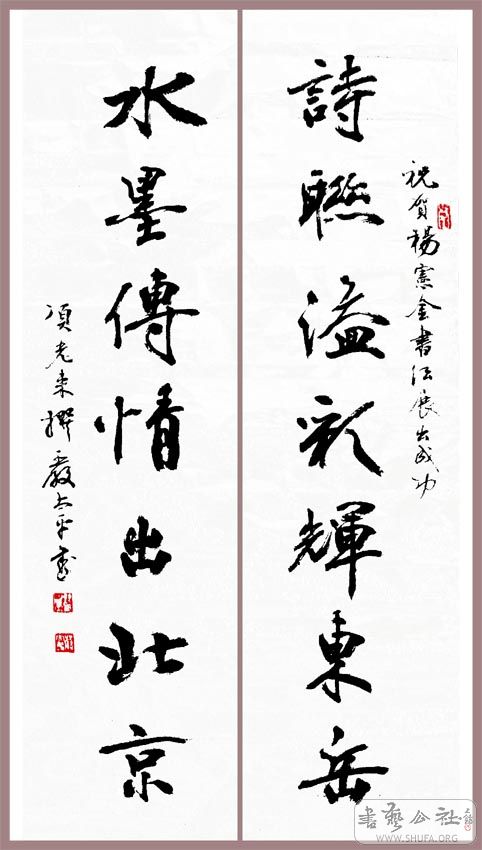 祝賀楊憲金書法展出成功
詩聯溢彩輝東岳
水墨傳情出北京
項来撰嚴太平書
書藝公社
WWW.SHUFA.ORG